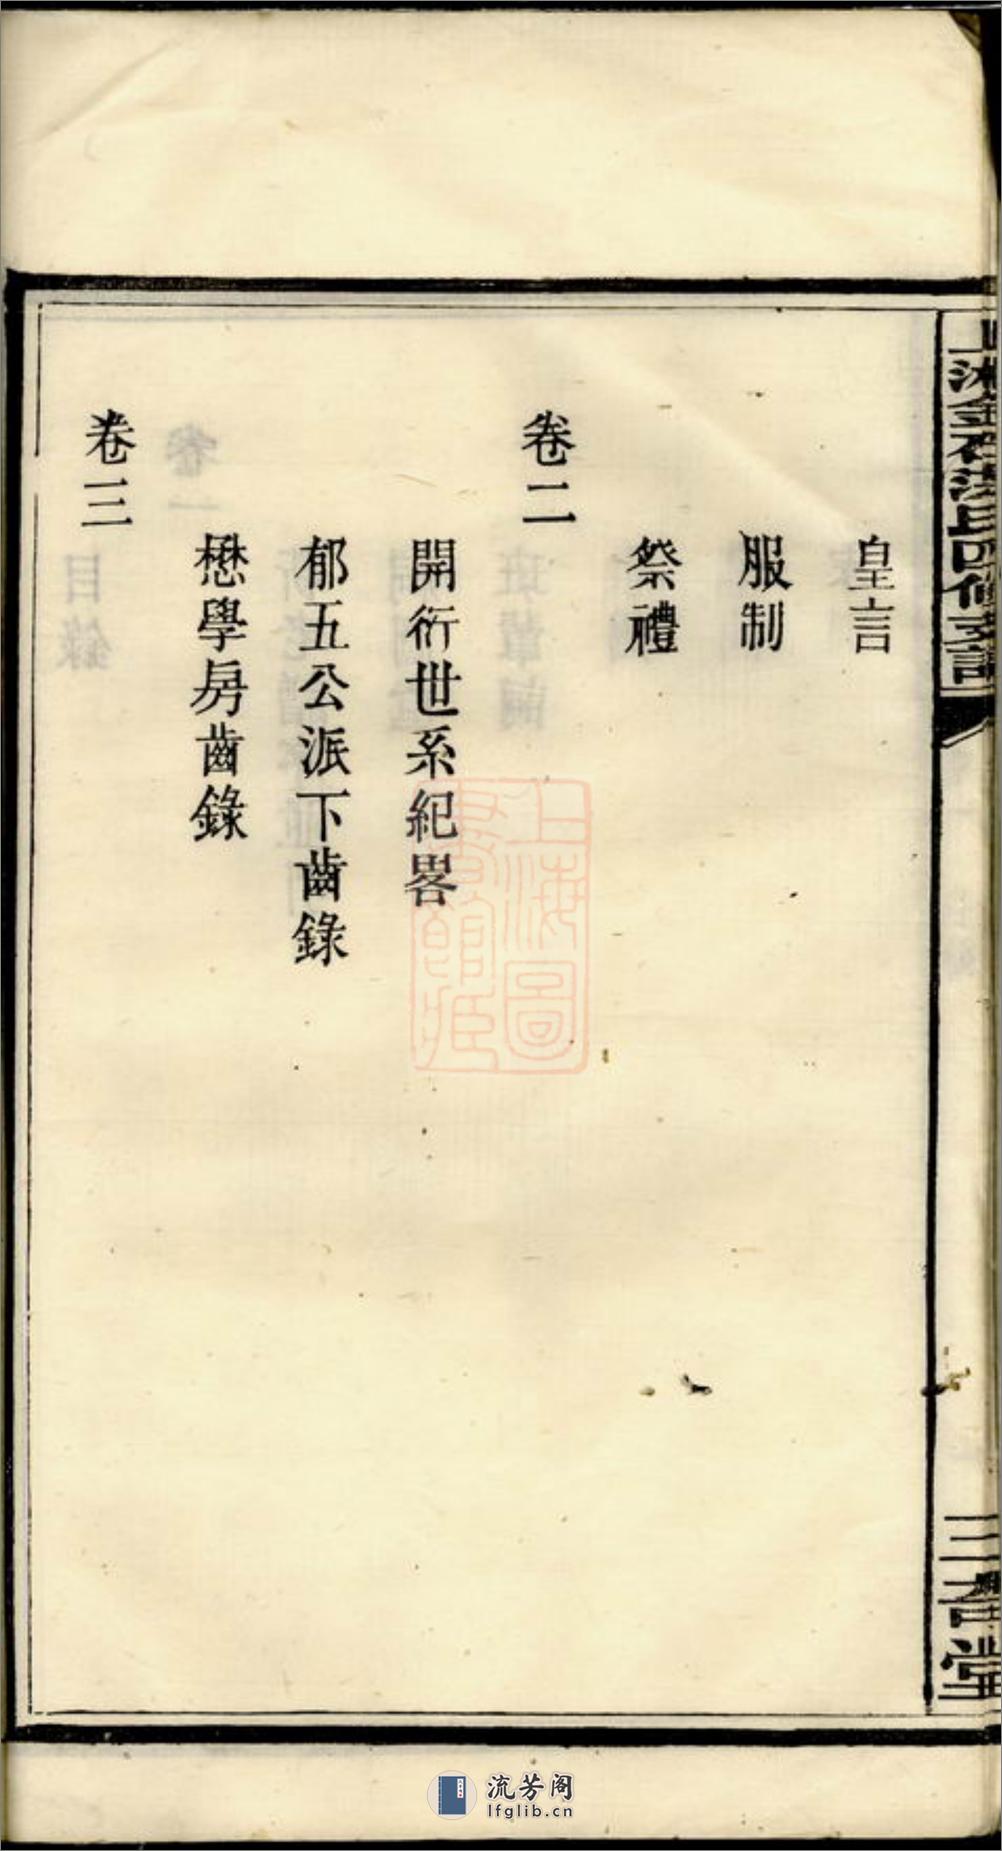 上湘金石洪氏四修支譜
三吾堂
皇言
服制
祭禮
卷二
開衍世系紀畧
郁五公派下齒錄
懋學房齒錄
卷三
上海圖書館藏
流芳阁
lfglib.cn